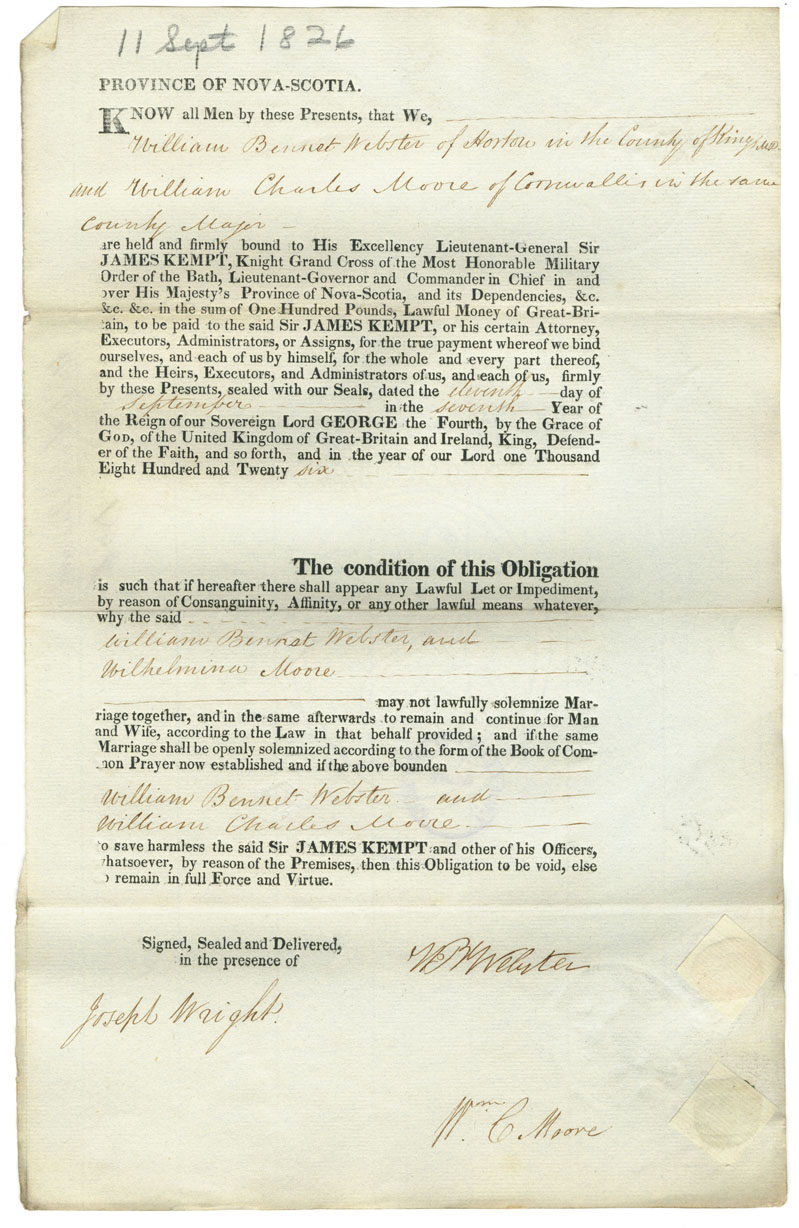 11 Sept 1826
PROVINCE OF NOVA-SCOTIA.
KNOW all Men by these Presents, that We,
William Bennet Webster of Horton in the County of Kings
and William Charles Moore of Cornwallis in the same
County Major
are held and firmly bound to His Excellency Lieutenant-General Sir
JAMES KEMPT, Knight Grand Cross of the Most Honorable Military
Order of the Bath, Lieutenant-Governor and Commander in Chief in and
over His Majesty's Province of Nova-Scotia, and its Dependencies, &c.
&c. &c. in the sum of One Hundred Pounds, Lawful Money of Great-Bri-
tain, to be paid to the said Sir JAMES KEMPT, or his certain Attorney,
Executors, Administrators, or Assigns, for the true payment whereof we bind
ourselves, and each of us by himself, for the whole and every part thereof,
and the Heirs, Executors, and Administrators of us, and each of us, firmly
by these Presents, sealed with our Seals, dated the eleventh day of
September in the seventh Year of
the Reign of our Sovereign Lord GEORGE the Fourth, by the Grace of
GOD, of the United Kingdom of Great-Britain and Ireland, King, Defend-
er of the Faith, and so forth, and in the year of our Lord one Thousand
Eight Hundred and Twenty six
The condition of this Obligation
is such that if hereafter there shall appear any Lawful Let or Impediment,
by reason of Consanguinity, Affinity, or any other lawful means whatever,
why the said
William Bennet Webster, and
Wilhelmina Moore
may not lawfully solemnize Mar-
riage together, and in the same afterwards to remain and continue for Man
and Wife, according to the Law in that behalf provided; and if the same
Marriage shall be openly solemnized according to the form of the Book of Com-
mon Prayer now established and if the above bounden
William Bennet Webster and
William Charles Moore
to save harmless the said Sir JAMES KEMPT and other of his Officers,
whatsoever, by reason of the Premises, then this Obligation to be void, else
to remain in full Force and Virtue.
Signed, Sealed and Delivered,
in the presence of
WBWebster
Joseph Wright.
Wm. C Moore